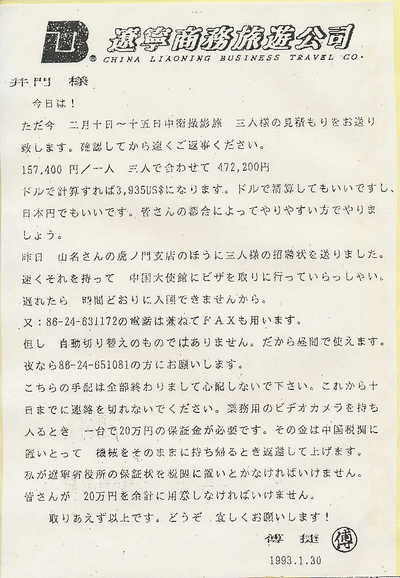 遼寧商務旅遊公司
CHINA LIAONING BUSINESS TRAVEL CO.
井門 様
今日は!
ただ今 二月十日~十五日中衛撮影旅 三人様の見積もりをお送り
致します。確認してから速くご返事ください。
157,400 円/一人 三人で合わせて 472,200円
ドルで計算すれば3,935US$になります。ドルで清算してもいいですし、
日本円でもいいです。皆さんの都合によってやりやすい方でやりま
しょう。
昨日 山名さんの虎ノ門支店のほうに三人様の招聘状を送りました。
速くそれを持って 中国大使館にビザを取りに行っていらっしゃい。
遅れたら 時間どおりに入国できませんから。
又:86-24-631172の電話は兼ねてFAXも用います。
但し 自動切り替えのものではありません。だから昼間で使えます。
夜なら86-24-651081の方にお願いします。
こちらの手配は全部終わりまして心配しないで下さい。これから十
日までに連絡を切れないでください。業務用のビデオカメラを持ち
入るとき 一台で20万円の保証金が必要です。その金は中国税関に
置いとって 機械をそのままに持ち帰るとき返還して上げます。
私が遼寧省役所の保証状を税関に置いとかなければいけません。
皆さんが 20万円を余計に用意しなければいけません。
取りあえず以上です。どうぞ 宜しくお願いします!
傅 雄 傅
1993.1.30